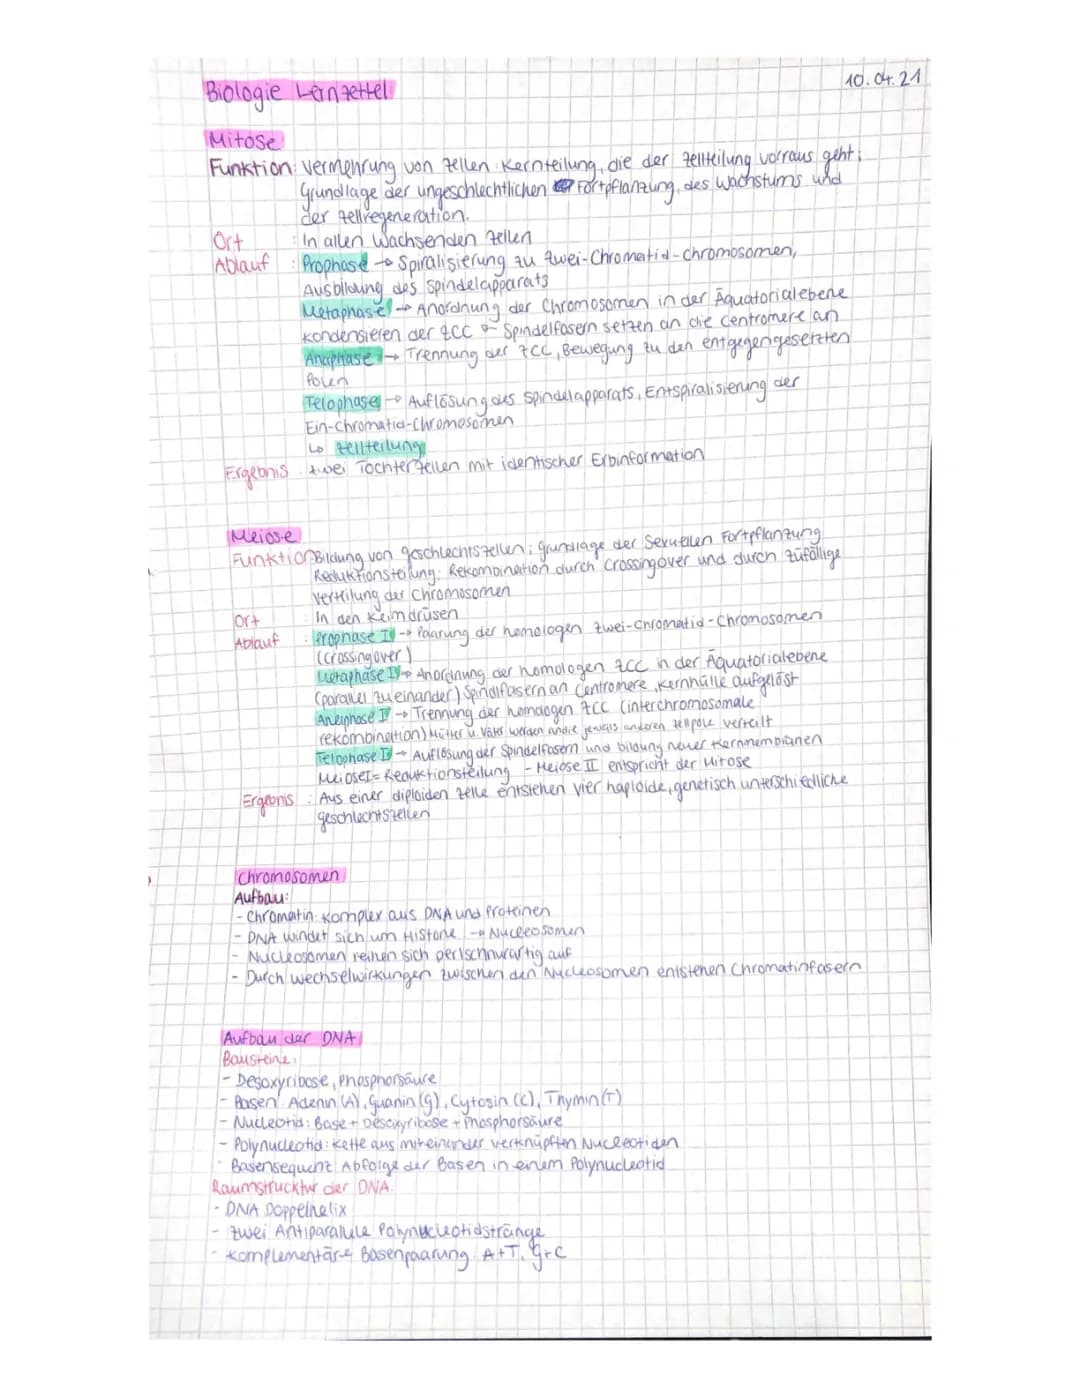 10.04.21
Biologie Lernzettel
Mitose
Funktion: Vermehrung von Zellen. Kernteilung, die der Zellteilung vorraus geht;
Grundlage der ungeschlechtlichen Fortpflanzung, des Wachstums und
der Zellregeneration.
Ort : In allen Wachsenden Zellen
Ablauf : Prophase → Spiralisierung zu Zwei-Chromatid-Chromosomen,
Ausbildung des Spindelapparats
Metaphase → Anordnung der Chromosomen in der Äquatorialebene
kondensieren der ZCC Spindelfasern setzen an die Centromere an
Anaphase → Trennung der ZCC, Bewegung zu den entgegengesetzten
Polen
Telophase → Auflösung des Spindelapparats, Entspiralisierung der
Ein-Chromatid-Chromosomen
↳ Zellteilung
Ergebnis : Zwei Tochterzellen mit identischer Erbinformation
Meiose
Funktion Bildung von Geschlechtszellen; Grundlage der Sexuellen Fortpflanzung
Reduktionsteilung: Rekombination durch Crossingover und durch zufällige
Verteilung der Chromosomen
Ort : In den Keimdrüsen
Ablauf : Prophase I → Paarung der homologen Zwei-Chromatid-Chromosomen
(Crossingover)
Metaphase I → Anordnung der homologen ZCC in der Äquatorialebene
(parallel zueinander) Spindlfasern an Centromere, Kernhülle aufgelöst
Anaphase I → Trennung der homologen ZCC (interchromosomale
rekombination) Mütter u. Väter werden an die jeweils anderen Zellpole verteilt
Telophase I → Auflösung der Spindelfasern und bildung neuer Kernmembranen
Meiose I = Reduktionsteilung - Meiose II entspricht der Mitose
Ergebnis : Aus einer diploiden Zelle entstehen vier haploide, genetisch unterschiedliche
geschlechtszellen
Chromosomen
Aufbau:
- Chromatin: Komplex aus DNA und Proteinen
- DNA windet sich um Histone → Nucleosomen
- Nucleosomen reihen sich perlschnurartig auf
- Durch Wechselwirkungen zwischen den Nucleosomen entstehen Chromatinfasern
Aufbau der DNA
Bausteine:
- Desoxyribose, Phosphorsäure
- Basen Adenin (A), Guanin (G), Cytosin (C), Thymin (T)
- Nucleotid: Base + Desoxyribose + Phosphorsäure
- Polynucleotid: Kette aus miteinander verknüpften Nucleotiden
- Basensequenz Abfolge der Basen in einem Polynucleotid
Raumstrucktur der DNA:
- DNA Doppelhelix
- Zwei Antiparallele Polynucleotidstränge
- Komplementäre Basenpaarung A+T, G+C